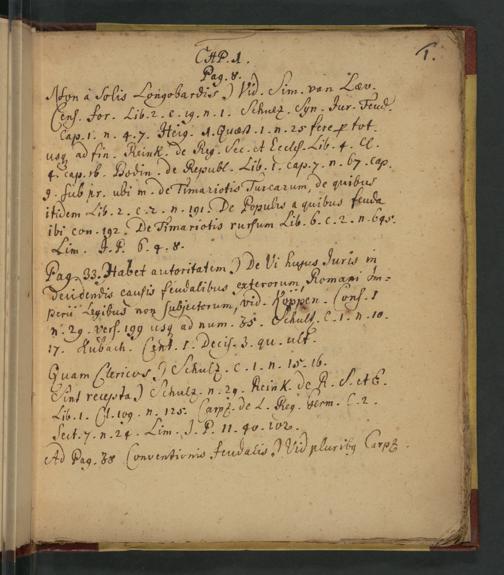 CAP. 1.
1.
Pag. 8.
Non à Solis Longobardis) Vid. Sim. van Læv.
Cens. for. Lib. 2. c. 19. n. 1. Schulz. Syn. Jur. Feud.
Cap. 1. n. 4. 7. Heig. 1. Quæst. 1. n. 25 fere p tot.
usq ad fin. Reink. de Reg. Sec. et Eccles. Lib. 4. Cl.
4. cap. 16. Bodin. de Republ. Lib. 1. cap. 7. n. 67. cap.
9. sub pr. ubi m. de Timariotis Turcarum, de quibus
itidem Lib. 2. c. 2. n. 191. De Populis a quibus feuda
ibi con. 192. De Timariotis rursum Lib. 6. c. 2. n. 645.
Lim. J. P. 6. 4. 8.
Pag. 33. Habet autoritatem) De Vi hujus Juris in
decidendis causis feudalibus exterorum, Romani Im=
perii Legibus non subjectorum, vid. Köppen. Cons. 1
n. 29. vers. 199 usq ad num. 35. Schult. c. 1. n. 10.
17. Rubach. Cent. 1. Decis. 3. qu. ult.
Quam Clericos.) Schulz. c. 1. n. 15. 16.
Sint recepta) Schulz. n. 29. Reink. de R. S. et E.
Lib. 1. Cl. 109. n. 125. Carpz. de L. Reg. Germ. C. 2.
Sect. 7. n. 24. Lim. J. P. 11. 40. 102.
Ad Pag. 38 Conventionis feudalis) Vid pluribq Carpz.